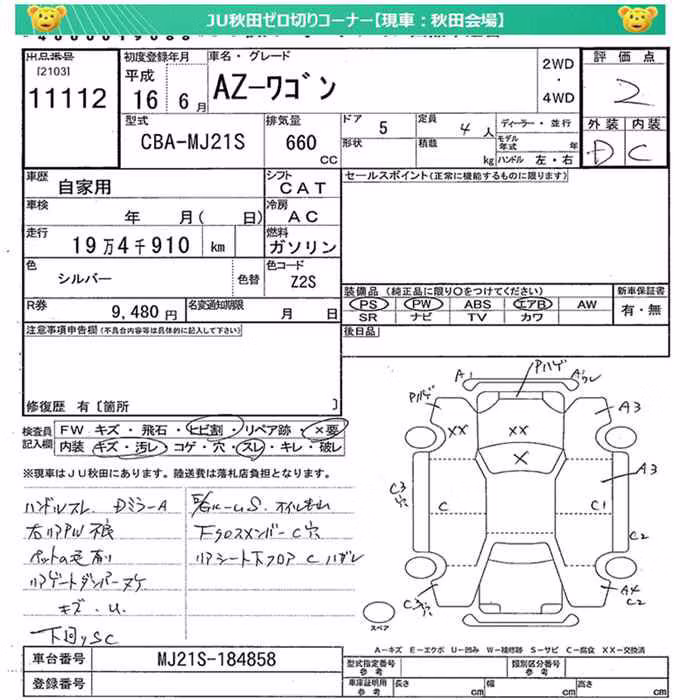 JU秋田ゼロ切りコーナー【現車:秋田会場】
出品番号
[2103]
11112
初度登録年月
平成
16 6 月
車名・グレード
AZ-ワゴン
2WD
・
4WD
評価点
2
外装 内装
D C
型式
CBA-MJ21S
排気量
660
CC
ドア 5
形状
定員 4 人
積載 kg
ディーラー・並行
モデル年式 年
ハンドル 左・右
車歴
自家用
シフト
CAT
セールスポイント(正常に機能するものに限ります)
車検
年 月( 日)
冷房
AC
走行
19万4千910 km
燃料
ガソリン
色
シルバー
色替
色コード
Z2S
装備品 (純正品に限り○をつけてください)
PS PW ABS エアB AW
SR ナビ TV カワ
新車保証書
有・無
R券
9,480 円
名変通知期限
月 日
後日品
注意事項申告欄(不具合内容等は具体的に記入して下さい)
修復歴 有〔箇所 〕
検査員記入欄
FW キズ・飛石・ヒビ割・リペア跡・×要
内装 キズ・汚レ コゲ・穴・スレ・キレ・破レ
※現車はJU秋田にあります。陸送費は落札店負担となります。
ハンドルスレ DミラーA
右リアPW不良
ペットの毛有り
リアゲートダンパーヌケ
キズ・U
下回りSC
下クロスメンバーC穴
リアシート下フロアC ハガレ
A1
Pハゲ
Pハゲ
XX
XX
X
A3
A3
C3
穴
C
C1
C2
穴
A4
C2
スペア
A-キズ E-エクボ U-凹み W-補修跡 S-サビ C-腐食 XX-交換済
車台番号
MJ21S-184858
登録番号
型式指定番号
参考
類別区分番号
参考
車庫証明用
参考
長さ cm
幅 cm
高さ cm